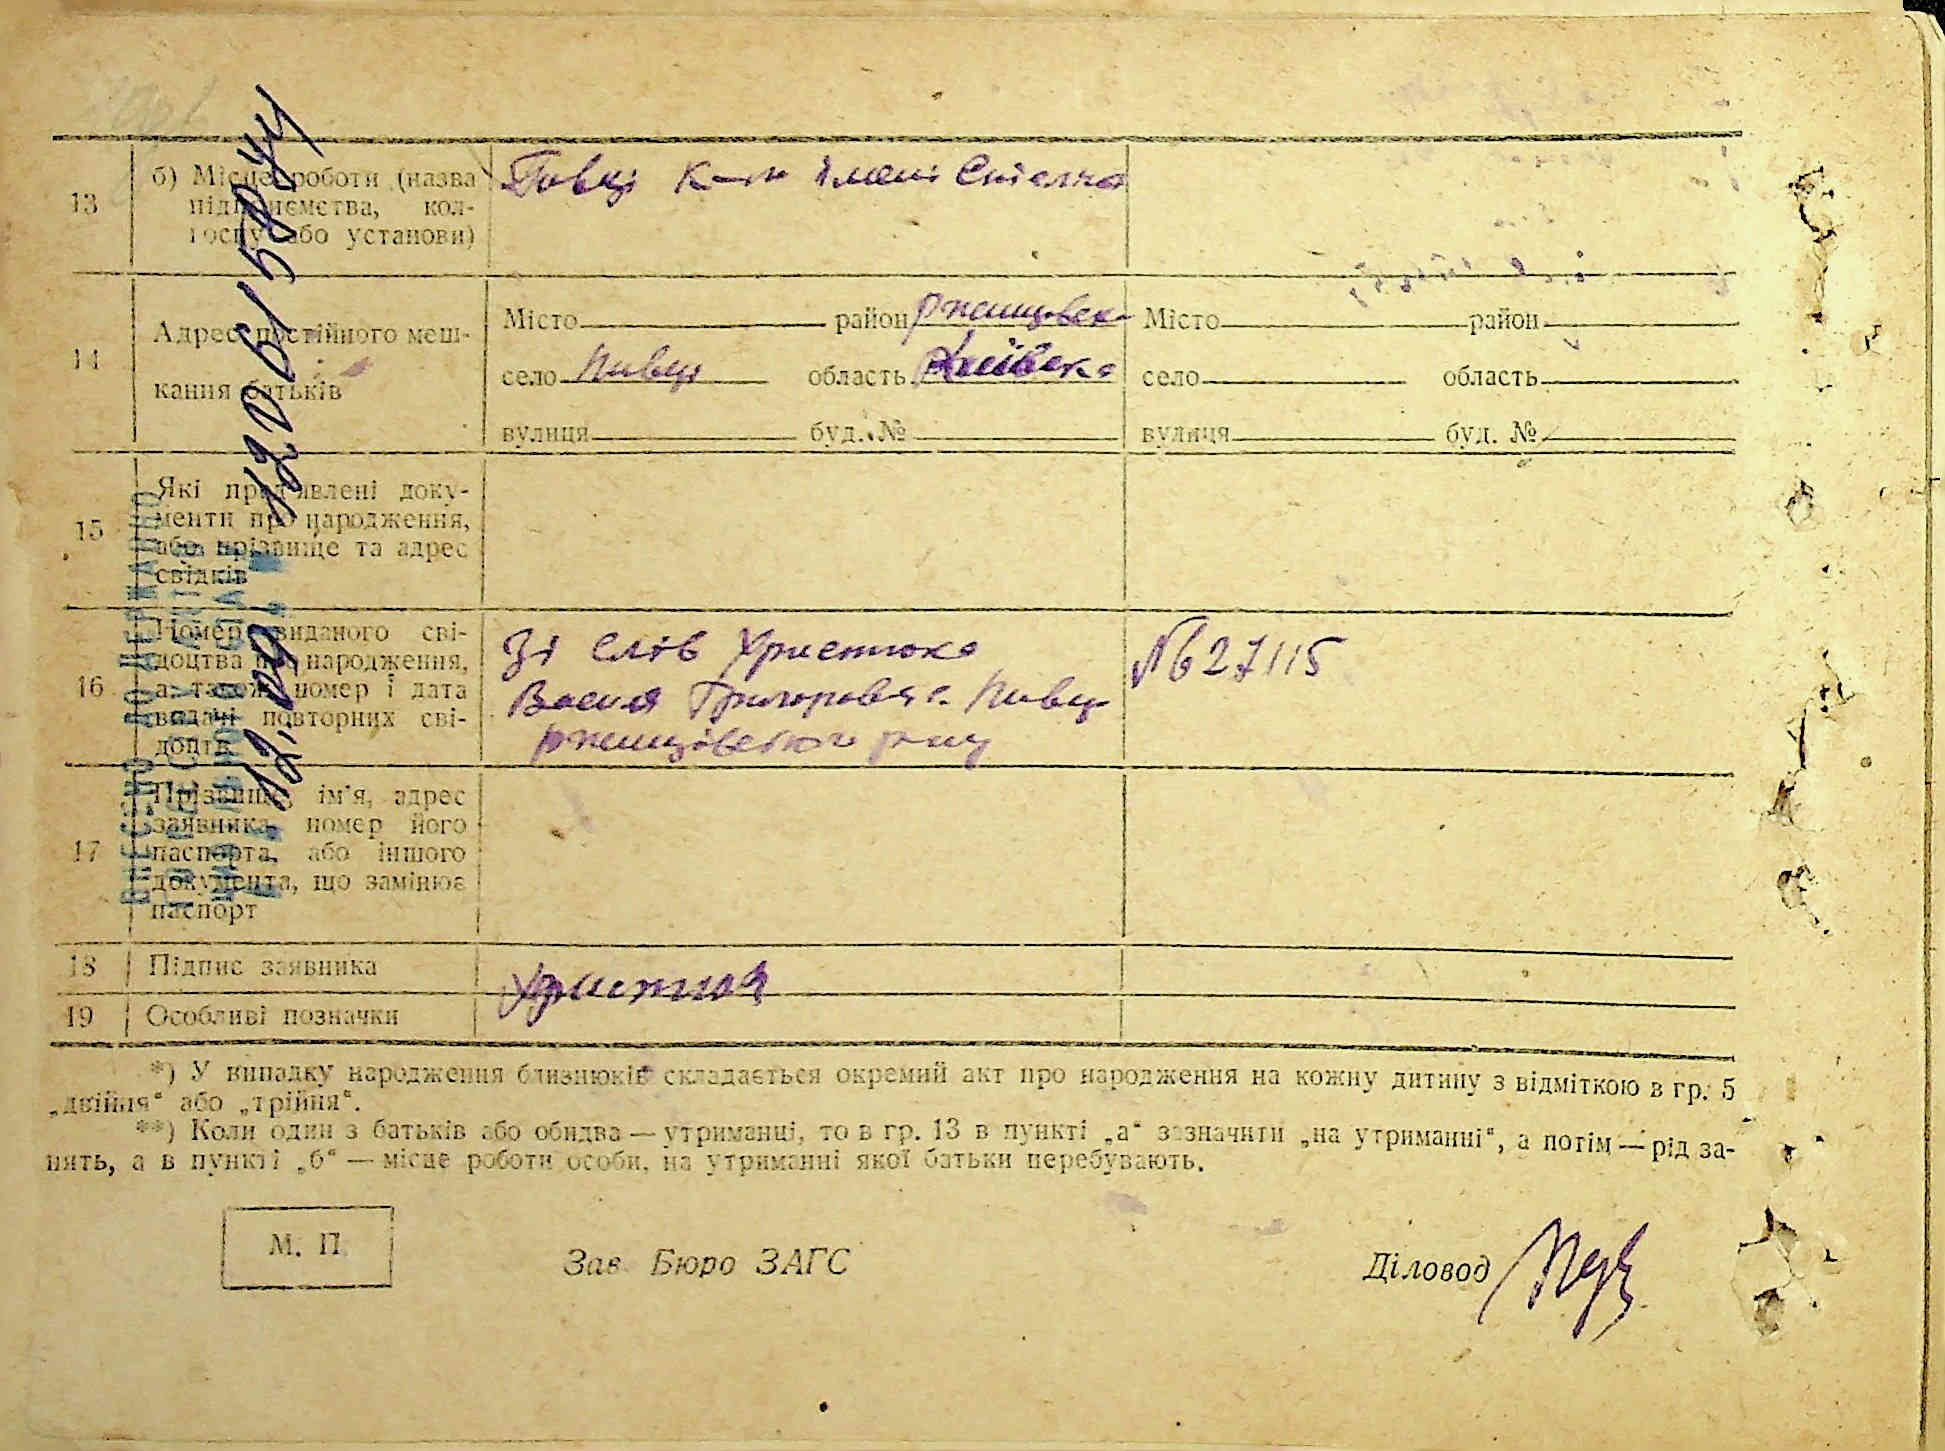 13
б) Місце роботи (назва
підприємства, кол-
госпу або установи)
Півці к-сп імені Сталіна
14
Адрес постійного меш-
кання батьків
Місто район Ржищівськ
село Півці область Київськ
вулиця буд. №
Місто район
село область
вулиця буд. №
15
Які пред'явлені доку-
менти про народження,
або прізвище та адрес
свідків
16
Номер виданого сві-
доцтва про народження,
а також номер і дата
видачі повторних сві-
доцтв
Зі слів Христюка
Василя Григоровича с. Півці
Ржищівського р-ну
№ 27115
17
Прізвище, ім'я, адрес
заявника, номер його
паспорта, або іншого
документа, що замінює
паспорт
18
Підпис заявника
Христюк
19
Особливі позначки
*) У випадку народження близнюків складається окремий акт про народження на кожну дитину з відміткою в гр. 5
„двійня“ або „трійня“.
**) Коли один з батьків або обидва — утриманці, то в гр. 13 в пункті „а“ зазначити „на утриманні“, а потім — рід за-
нять, а в пункті „б“ — місце роботи особи, на утриманні якої батьки перебувають.
М. П.
Зав. Бюро ЗАГС
Діловод
ВНЕСЕНО ДО ДЕРЖАВНО
12.09 12061580